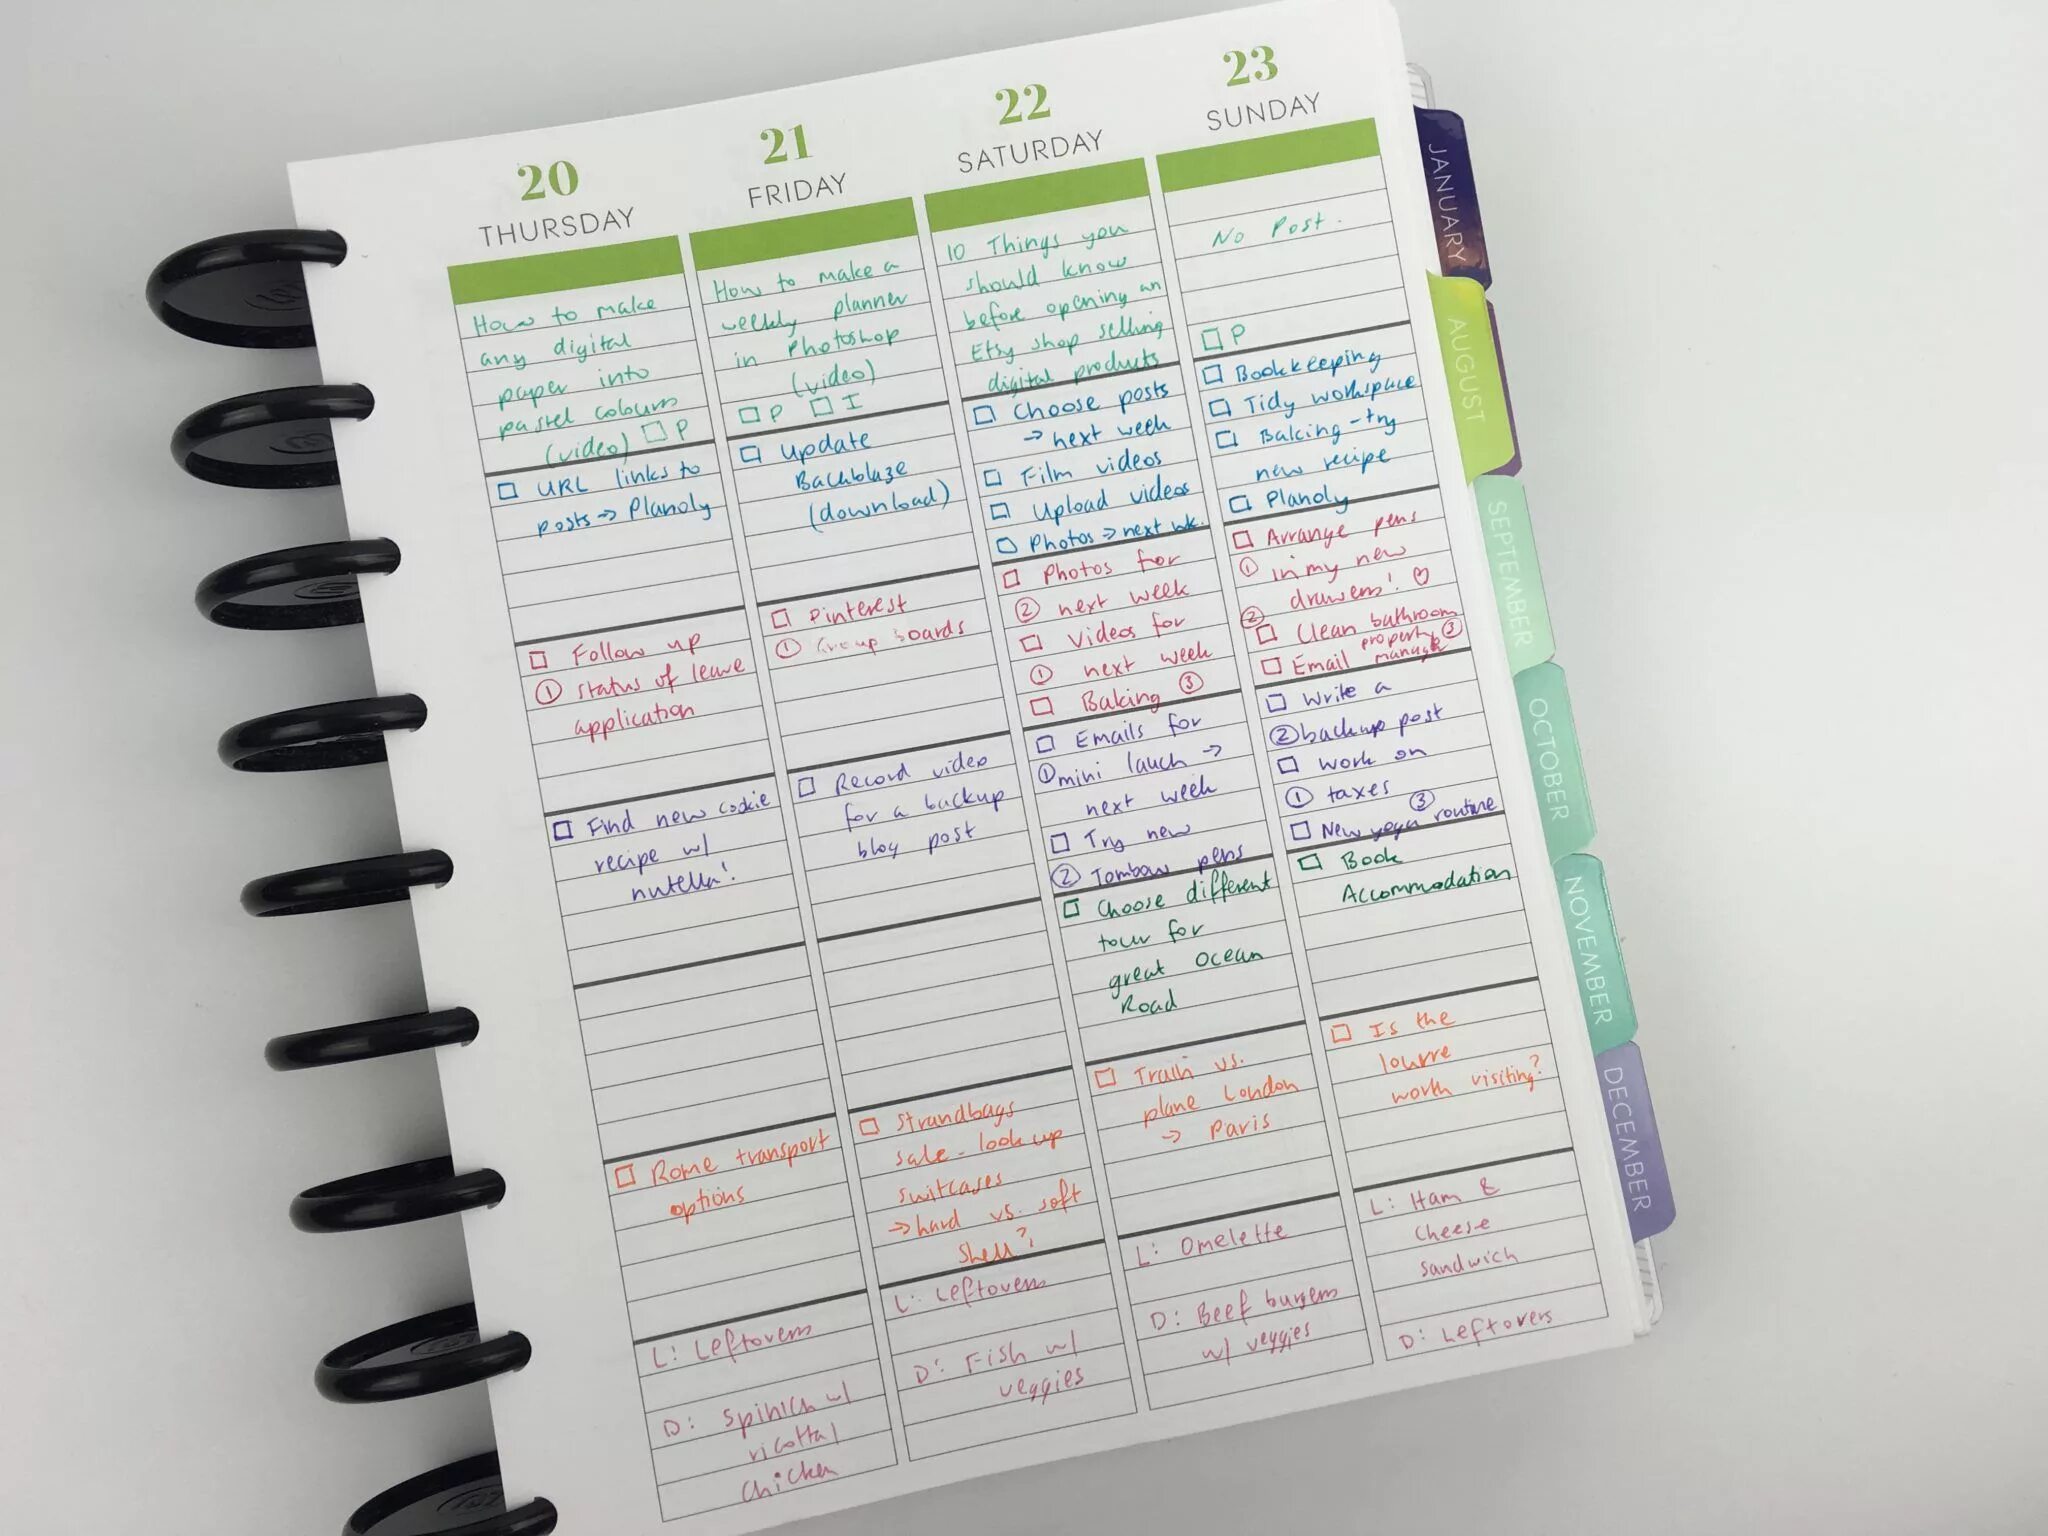 20
THURSDAY
How to make
any digital
paper into
pastel colours
(video) □ P
□ URL links to
posts → Planoly
□ Follow up
① status of leave
application
□ Find new cookie
recipe w/
nutella!
□ Rome transport
options
L: Leftovers
D: Spinich w/
ricotta/
Chicken
21
FRIDAY
How to make a
weekly planner
in Photoshop
(video)
□ P □ I
□ Update
Backblaze
(download)
□ Pinterest
① Group boards
□ Record video
for a backup
blog post
□ Strandbags
sale - look up
suitcases
→ hard vs. soft
shell?
L: Leftovers
D: Fish w/
veggies
22
SATURDAY
10 Things you
should know
before opening an
Etsy shop selling
digital products
□ Choose posts
→ next week
□ Film videos
□ Upload videos
□ Photos → next wk.
□ Photos for
② next week
□ Videos for
① next week
□ Baking ③
□ Emails for
① mini lauch →
next week
□ Try new
② Tombow pens
□ Choose different
tour for
great Ocean
Road
□ Train vs.
plane London
→ Paris
L: Omelette
D: Beef burgers
w/ veggies
23
SUNDAY
No Post.
□ P
□ Bookkeeping
□ Tidy workspace
□ Baking - try
new recipe
□ Planoly
□ Arrange pens
① in my new
drawers! ♡
② □ Clean bathroom
□ Email property manager ③
□ Write a
② backup post
□ Work on
① taxes ③
□ New yoga routine
□ Book
Accommodation
□ Is the
lourre
worth visiting?
L: Ham &
Cheese
sandwich
D: Leftovers
JANUARY
AUGUST
SEPTEMBER
OCTOBER
NOVEMBER
DECEMBER